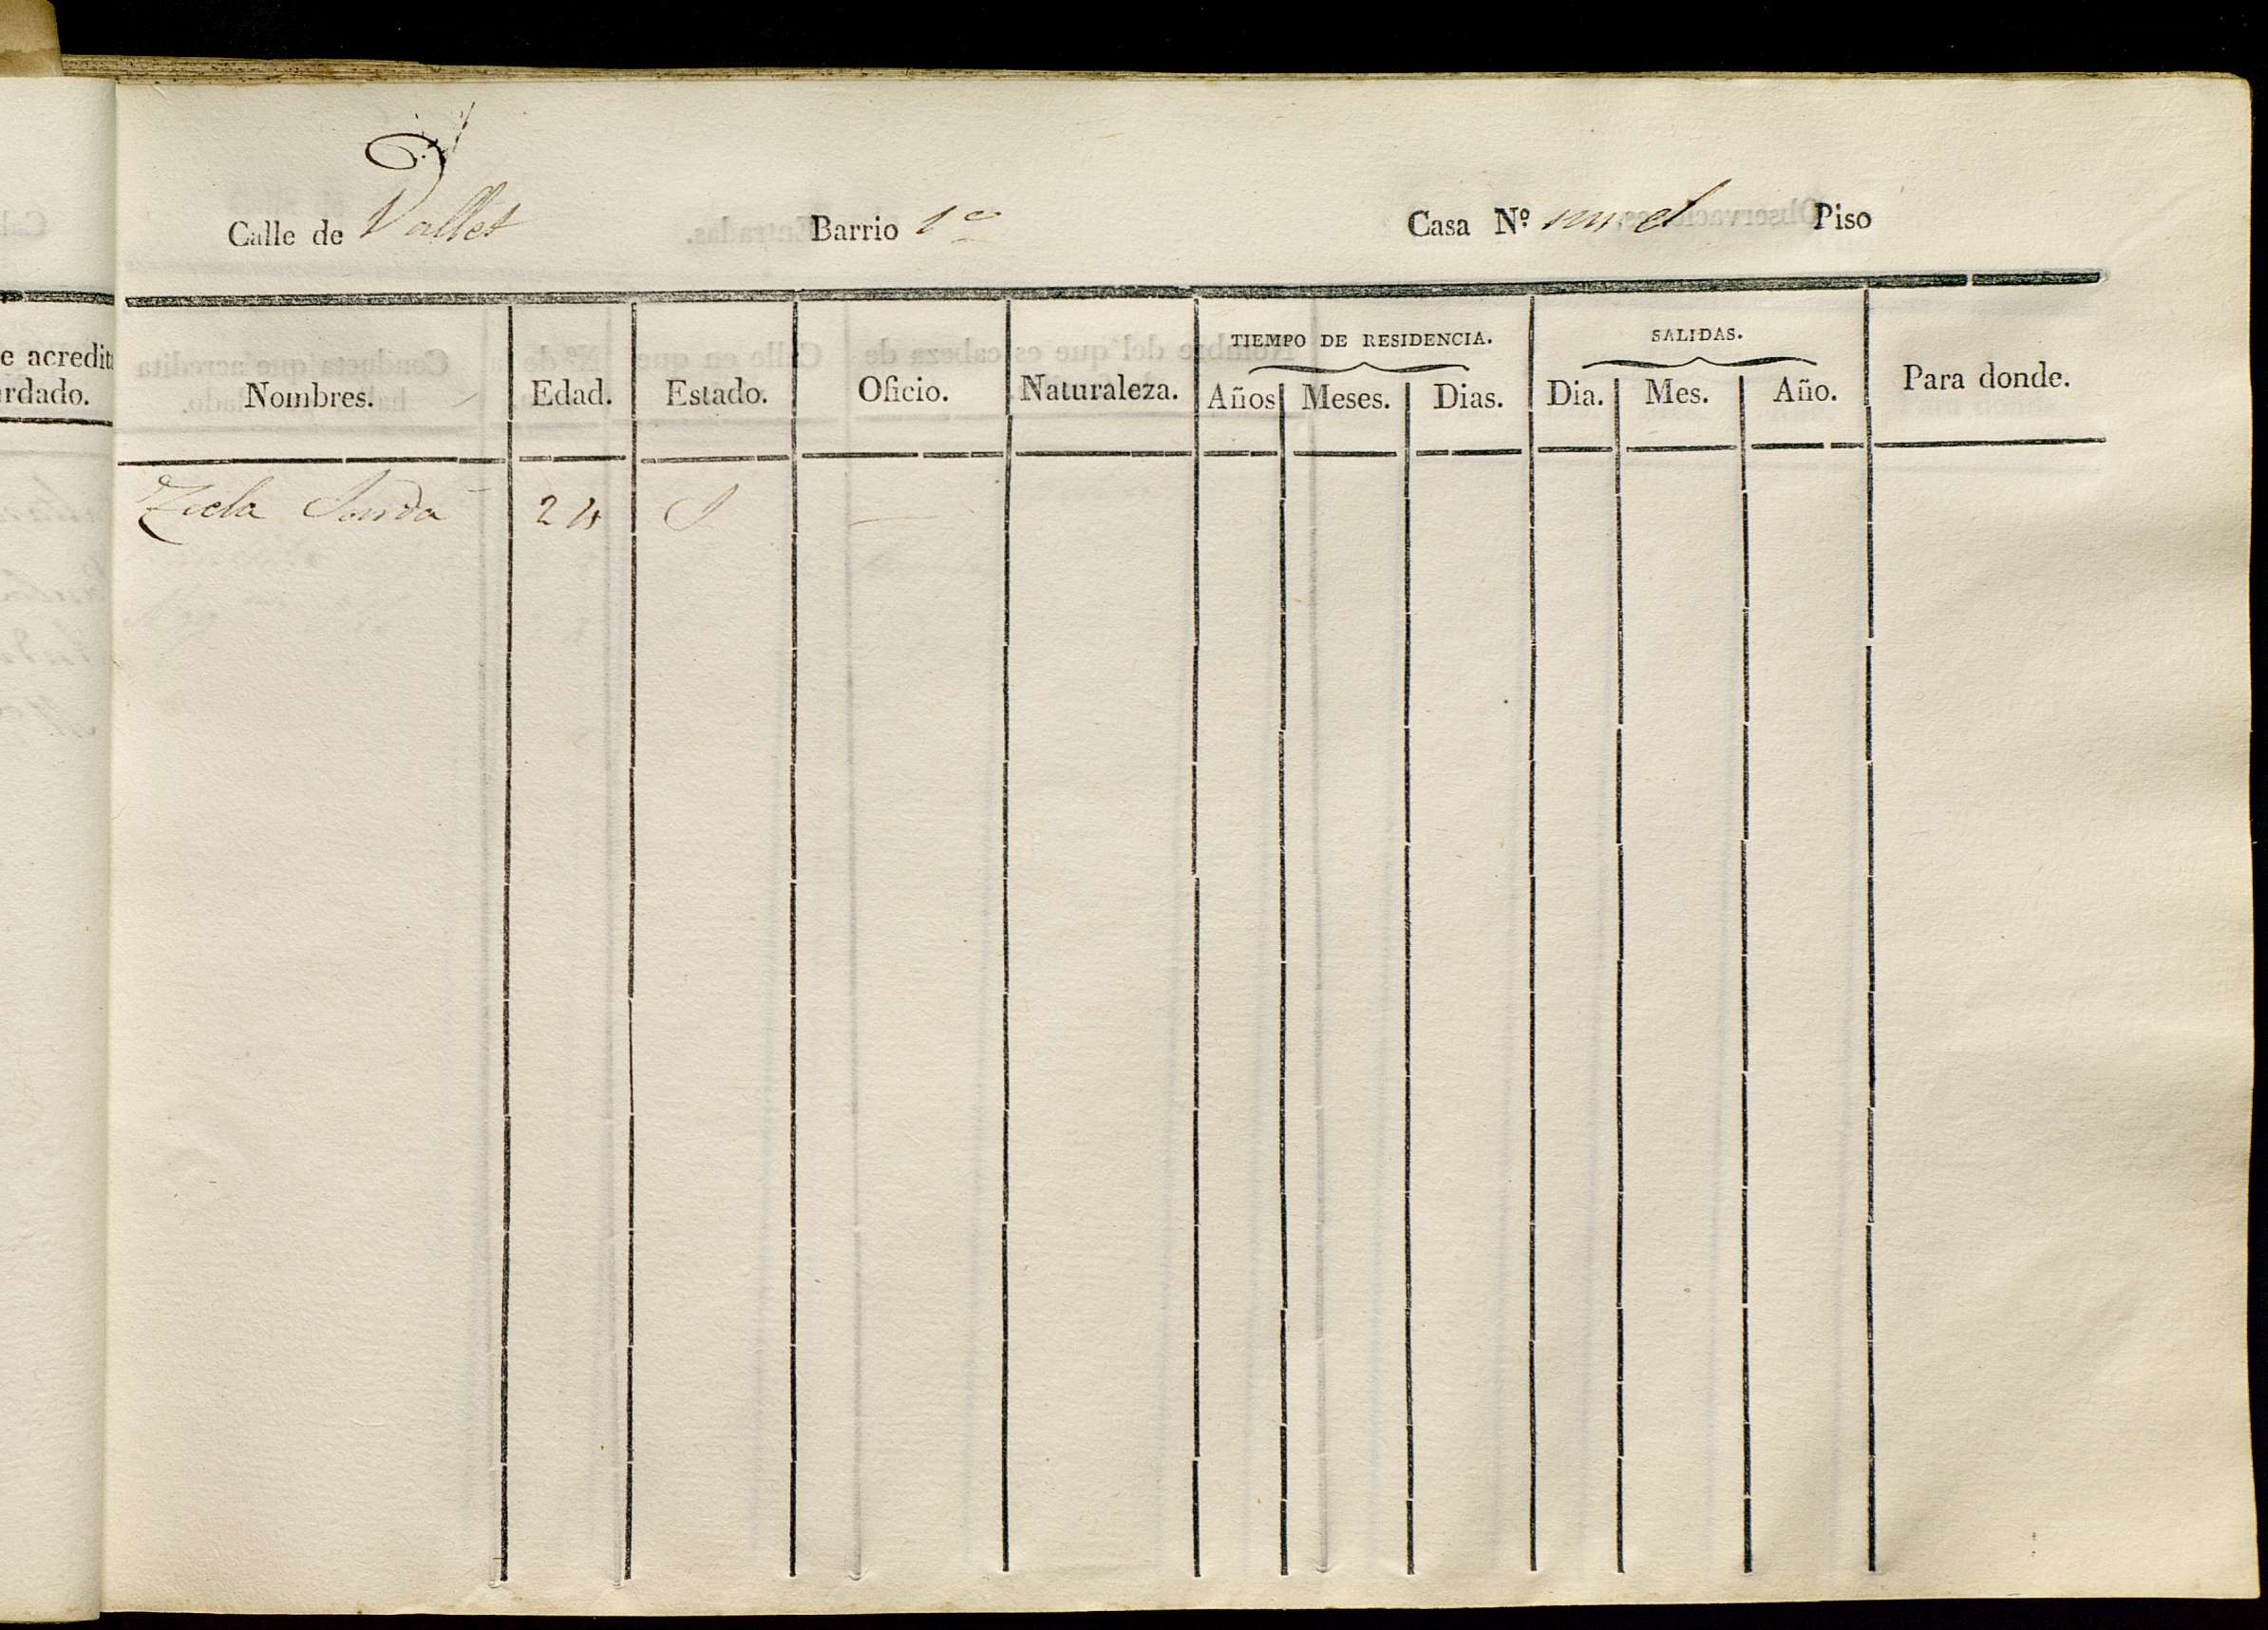 Calle de Vallet Barrio 1º Casa Nº Piso
e acredit
rdado.
TIEMPO DE RESIDENCIA. SALIDAS.
Nombres. Edad. Estado. Oficio. Naturaleza. Años Meses. Dias. Dia. Mes. Año. Para donde.
Tecla 24 S —